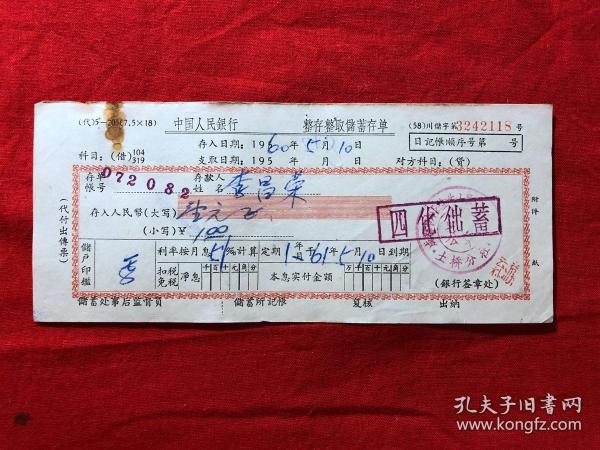 (代)5—205(7.5×18) 中国人民銀行 整存整取儲蓄存单 (58)川儲字第3242118号
存入日期：1960年5月10日 日記帳順序号第 号
科目：(借)104 319 支取日期：195 年 月 日 对方科目：(貸)
存单帳号 072082 存款人姓名 李昌荣
存入人民幣(大写) 壹元正
(小写)¥ 1.00
四化储蓄
土桥分社
(代付出傳票)
附件 紙
儲戶印鑑 利率按月息 51 ‰計算定期1年61年5月10日到期
扣税 免税 净息 千百十元角分 本息实付金額 万千百十元角分 (銀行签章处)
儲蓄处事后监督員 儲蓄所記帳 复核 出納
孔夫子旧书网
www.kongfz.com